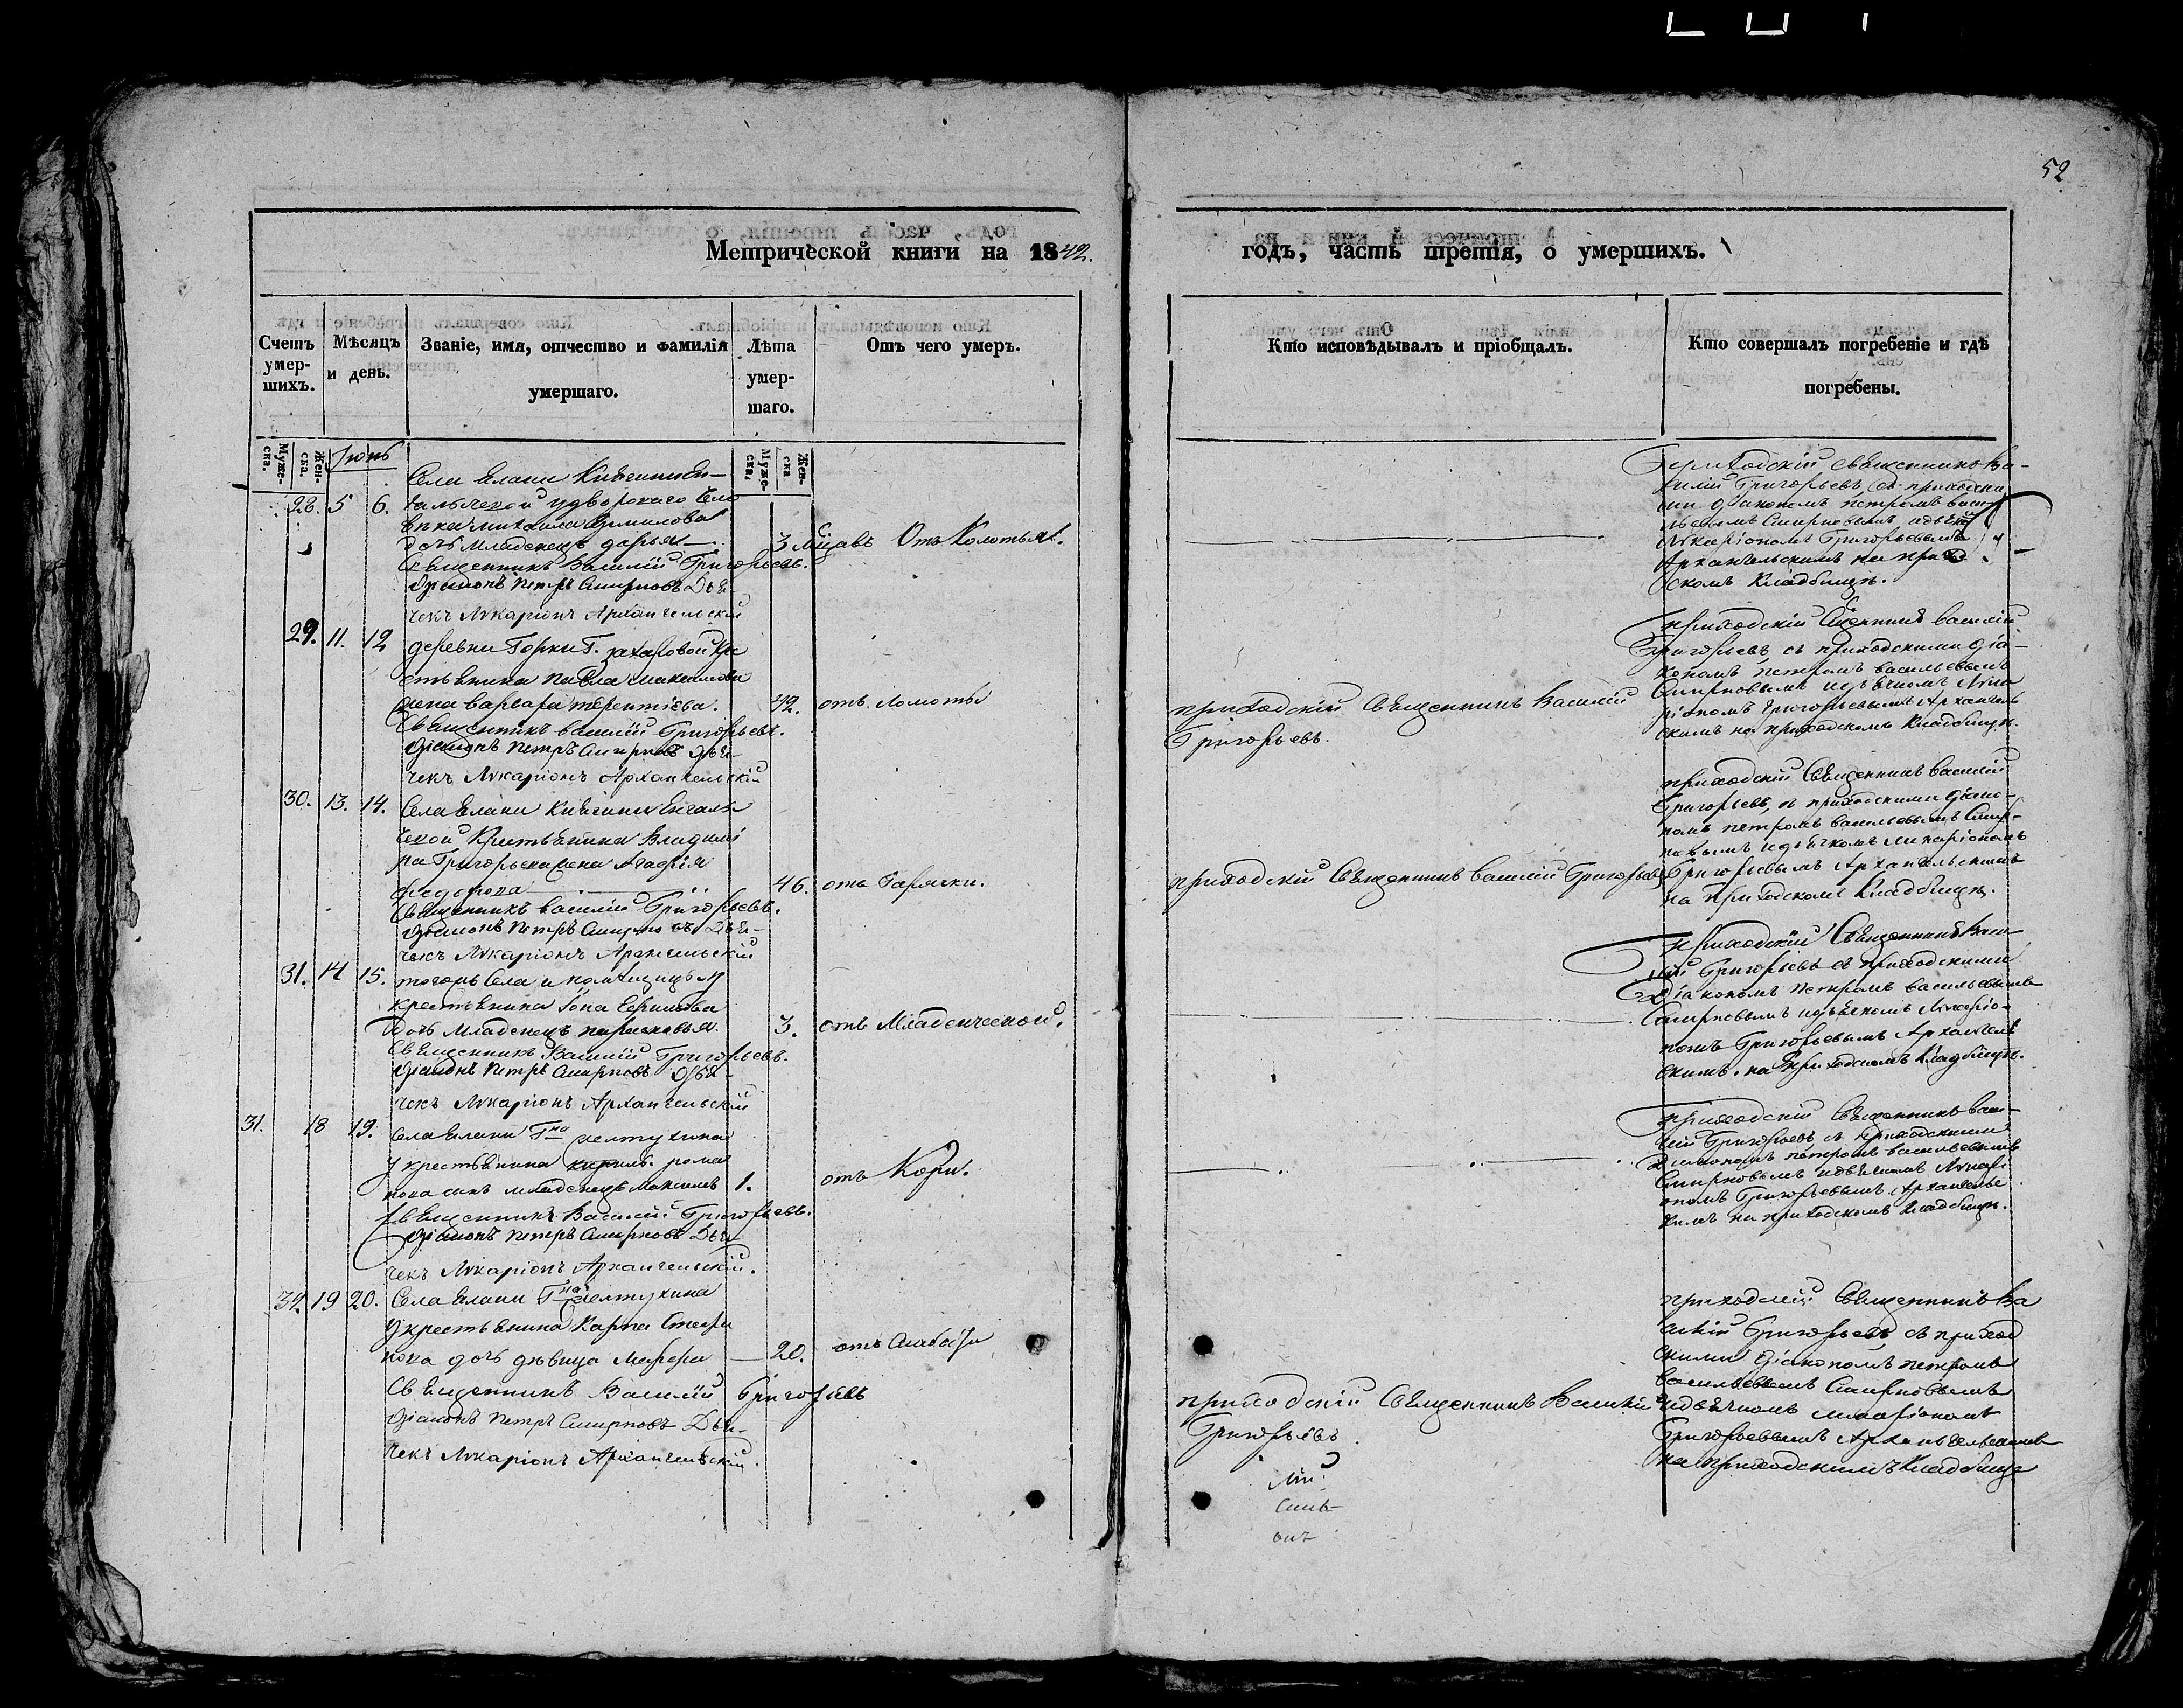 52
Метрической книги на 1842.
годъ, часть третія, о умершихъ.
Счетъ умер-шихъ.
Мѣсяцъ и день.
Званіе, имя, отчество и фамилія умершаго.
Лѣта умер-шаго.
Отъ чего умеръ.
Кто исповѣдывалъ и пріобщалъ.
Кто совершалъ погребеніе и гдѣ погребены.
Муже-ска.
Жен-ска.
Муже-ска.
Жен-ска
Іюнь
Села Елани Княгини Ен-
28. 5 6. галычевой удвороваго чело
вѣка михаила
дочь младенецъ дарья
3 мцавъ Отъ Колотья.
Священникъ Василій Григорьевъ.
діаконъ Петръ Смирновъ Дья-
чекъ Илларіонъ Архангельскій
Приходскій священникъ Ва-
силій Григорьевъ съ приходски
ми діакономъ петромъ васи
льевымъ Смирновымъ идьяч
Илларіономъ Григорьевымъ
Архангельскимъ на прихо
скомъ кладбищѣ.
29. 11. 12 деревни Горки Г. захаровой кре
стьянина Павла максимова
жена варвара терентіева.
42. отъ ломоты
Священникъ василій Григорьевъ.
діаконъ Петръ Смирновъ дья-
чекъ Илларіонъ Архангельскій
приходскій Священникъ Василій
Григорьевъ.
приходскій Сщенникъ василій
Григорьевъ съ приходскими діа-
кономъ петромъ васильевымъ
Смирновымъ идьячкомъ Илла
ріономъ Григорьевымъ Архангель
скимъ на приходскомъ кладбищѣ.
30. 13. 14. Села Елани Княгини Енгалы
чевой крестьянина Владимі
ра Григорьева жена Агафія
федорова
46. отъ Горячки.
Священникъ василій Григорьевъ.
діаконъ Петръ Смирновъ Дья-
чекъ Илларіонъ Архангельскій
приходскій Священникъ василій Григорьевъ
приходскій Священникъ василій
Григорьевъ, съ приходскими діако-
номъ петромъ васильевымъ Смир-
новымъ идьячкомъ Илларіономъ
Григорьевымъ Архангельскимъ
на приходскомъ кладбищѣ.
31. 14 15. тогожъ Села и помѣщицы у
крестьянина Іона Ефимова
дочь младенецъ парасковья.
3. отъ Младенческой.
Священникъ Василій Григорьевъ.
діаконъ Петръ Смирновъ дья-
чекъ Илларіонъ Архангельскій
приходскій Священникъ Васи-
лій Григорьевъ съ приходскими
діакономъ Петромъ васильевымъ
Смирновымъ идьячкомъ Илларіо-
номъ Григорьевымъ Архангель
скимъ. на приходскомъ кладбищѣ.
31. 18 19. Села Елани Гна желтухина
у крестьянина кирилы рома
нова сынъ младенецъ максимъ 1.
отъ Кори.
Священникъ Василій Григорьевъ.
діаконъ Петръ Смирновъ Дья-
чекъ Илларіонъ Архангельскій.
приходскій Священникъ васи-
лій Григорьевъ съ приходскими
діакономъ петромъ васильевымъ
Смирновымъ идьячкомъ Иллари
ономъ Григорьевымъ Архангельс
кимъ на приходскомъ кладбищѣ.
32. 19 20. Села Елани Гна желтухина
у крестьянина Карпа Стефа
нова дочь дѣвица Марфа
20. отъ слабости
Священникъ Василій Григорьевъ
діаконъ Петръ Смирновъ Дья-
чекъ Илларіонъ Архангельскій.
приходскій Священникъ Василій
Григорьевъ.
приходскій Священникъ Ва
силій Григорьевъ, съ приход
скими діакономъ петромъ
васильевымъ Смирновымъ
идьячкомъ Илларіономъ
Григорьевымъ Архангельскимъ
на приходскимъ кладбище